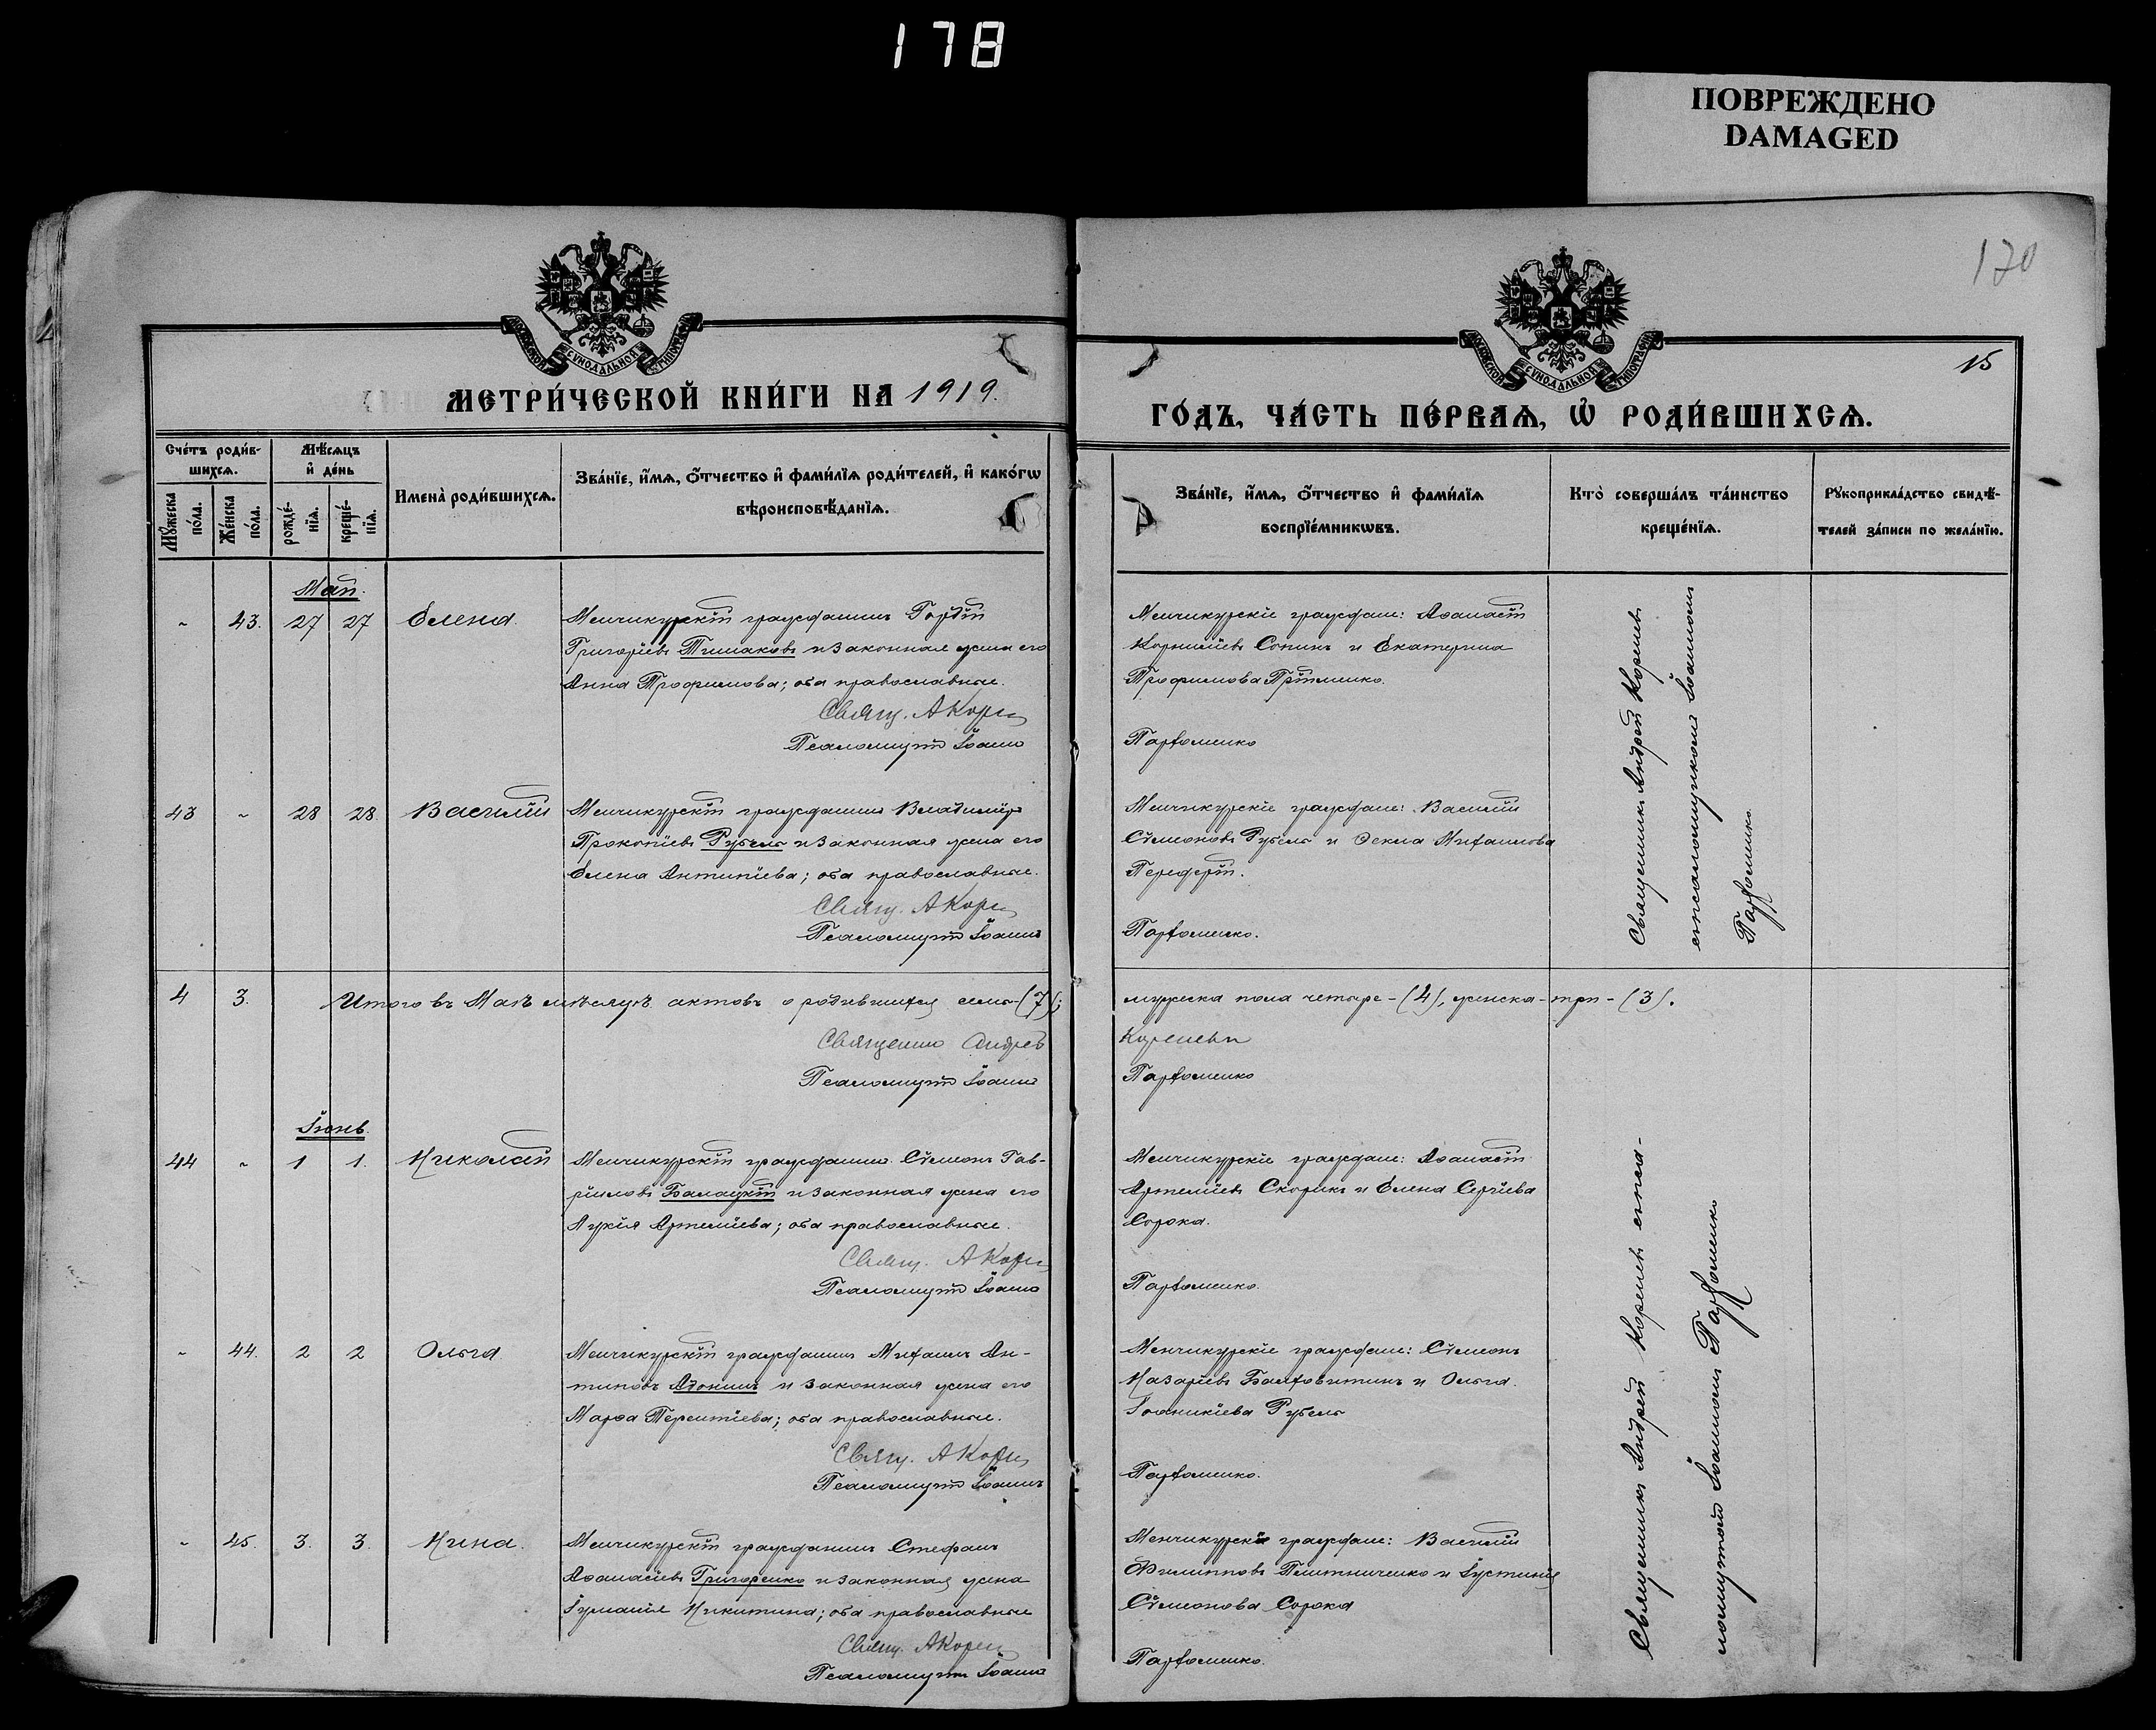 178
ПОВРЕЖДЕНО
DAMAGED
170
15
МОСКОВСКОЙ СѴНОДАЛЬНОЙ ТИПОГРАФІИ
МОСКОВСКОЙ СѴНОДАЛЬНОЙ ТИПОГРАФІИ
МЕТРИ́ЧЕСКОЙ КНИ́ГИ НА 1919.
ГО́ДЪ, ЧА́СТЬ ПЕ́РВАѦ, Ѡ҆ РОДИ́ВШИХСѦ.
Сче́тъ роди́в-
шихсѧ.
Мѣ́сѧцъ
и҆ де́нь
Мꙋ́жеска по́ла.
Же́нска по́ла.
рожде́-нїѧ.
креще́-нїѧ.
Имена̀ роди́вшихсѧ.
Зва́нїе, и҆́мѧ, ѻ҆́тчество и҆ фами́лїѧ роди́телей, и҆ како́гѡ
вѣроисповѣ́данїѧ.
Зва́нїе, и҆́мѧ, ѻ҆́тчество и҆ фами́лїѧ
воспрїе́мникѡвъ.
Кто̀ соверша́лъ та́инство
креще́нїѧ.
Рꙋкоприкла́дство свидѣ́-
телей за́писи по жела́нїю.
Май.
„ 43. 27 27 Елена.
Менчикурскій гражданинъ Гордій
Григоріевъ Тимаковъ и законная жена его
Анна Трофимова; оба православные.
Свящ. А Корен
Псаломщикъ Іоаннъ
Менчикурскіе граждане: Аѳанасій
Корниліевъ Сопинъ и Екатерина
Трофимова
Парфоменко
Священникъ Андрей Кореневъ
съ псаломщикомъ Іоанномъ
Парфоменко
43 „ 28 28. Василій
Менчикурскій гражданинъ Владиміръ
Прокопіевъ Рубель и законная жена его
Елена Антипіева; оба православные.
Свящ. А Корен
Псаломщикъ Іоаннъ
Менчикурскіе граждане: Василій
Сѵмеоновъ Рубель и Ѳекла Михаилова
Перефертій.
Парфоменко.
4 3. Итого въ Маѣ мѣсяцѣ актовъ о родившихся семь-(7);
мужеска пола четыре-(4), женска-три-(3).
Священникъ Андрей
Кореневъ
Псаломщикъ Іоаннъ
Парфоменко
Іюнь.
44 „ 1 1. Николай
Менчикурскій гражданинъ Сѵмеонъ Гав-
ріиловъ Балацкій и законная жена его
Лукія Артеміева; оба православные.
Свящ. А Корен
Псаломщикъ Іоаннъ
Менчикурскіе граждане: Аѳанасій
Артеміевъ Скорикъ и Елена Сергіева
Сорока.
Парфоменко.
Священникъ Андрей Кореневъ съ пса-
ломщикомъ Іоанномъ Парфоменко
„ 44. 2 2 Ольга
Менчикурскій гражданинъ Михаилъ Ан-
типовъ Адонинъ и законная жена его
Марѳа Терентіева; оба православные.
Свящ. А Корен
Псаломщикъ Іоаннъ
Менчикурскіе граждане: Сѵмеонъ
Назаріевъ и Ольга
Іоанникіева Рубель
Парфоменко.
„ 45. 3. 3. Нина.
Менчикурскій гражданинъ Стефанъ
Аѳанасіевъ Григоренко и законная жена
Іуліанія Никитина; оба православные
Свящ. А Корен
Псаломщикъ Іоаннъ
Менчикурскіе граждане: Василій
Филипповъ и Іустинія
Сѵмеонова Сорока
Парфоменко.